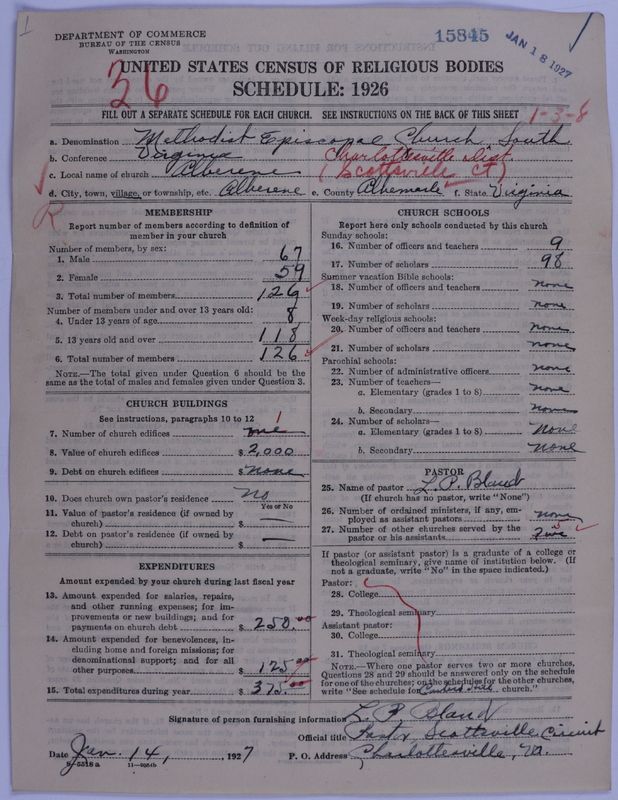 1
DEPARTMENT OF COMMERCE
BUREAU OF THE CENSUS
WASHINGTON
15845
JAN 18 1927
UNITED STATES CENSUS OF RELIGIOUS BODIES
36
SCHEDULE: 1926
FILL OUT A SEPARATE SCHEDULE FOR EACH CHURCH. SEE INSTRUCTIONS ON THE BACK OF THIS SHEET
1-3-8
a. Denomination Methodist Episcopal Church, South
b. Conference Virginia Charlottesville Dist.
c. Local name of church Alberene (Scottsville Ct)
d. City, town, village, or township, etc. Alberene e. County Albemarle f. State Virginia
R
MEMBERSHIP
Report number of members according to definition of
member in your church
Number of members, by sex:
1. Male 67
2. Female 59
3. Total number of members 126
Number of members under and over 13 years old:
4. Under 13 years of age 8
5. 13 years old and over 118
6. Total number of members 126
NOTE.—The total given under Question 6 should be the
same as the total of males and females given under Question 3.
CHURCH BUILDINGS
See instructions, paragraphs 10 to 12
1
7. Number of church edifices one
8. Value of church edifices $ 2,000
9. Debt on church edifices $ none
10. Does church own pastor's residence no
Yes or No
11. Value of pastor's residence (if owned by
church) $ —
12. Debt on pastor's residence (if owned by
church) $ —
EXPENDITURES
Amount expended by your church during last fiscal year
13. Amount expended for salaries, repairs,
and other running expenses; for im-
provements or new buildings; and for
payments on church debt $ 250.00
14. Amount expended for benevolences, in-
cluding home and foreign missions; for
denominational support; and for all
other purposes $ 125.00
15. Total expenditures during year $ 375.00
CHURCH SCHOOLS
Report here only schools conducted by this church
Sunday schools:
16. Number of officers and teachers 9
17. Number of scholars 98
Summer vacation Bible schools:
18. Number of officers and teachers none
19. Number of scholars none
Week-day religious schools:
20. Number of officers and teachers none
21. Number of scholars none
Parochial schools:
22. Number of administrative officers none
23. Number of teachers—
a. Elementary (grades 1 to 8) none
b. Secondary none
24. Number of scholars—
a. Elementary (grades 1 to 8) None
b. Secondary none
PASTOR
25. Name of pastor L. P. Bland
(If church has no pastor, write "None")
26. Number of ordained ministers, if any, em-
ployed as assistant pastors none
27. Number of other churches served by the
pastor or his assistants five 5
If pastor (or assistant pastor) is a graduate of a college or
theological seminary, give name of institution below. (If
not a graduate, write "No" in the space indicated.)
Pastor:
28. College
29. Theological seminary
Assistant pastor:
30. College
31. Theological seminary
NOTE.—Where one pastor serves two or more churches,
Questions 28 and 29 should be answered only on the schedule
for one of the churches; on the schedules for the other churches,
write "See schedule for church."
Signature of person furnishing information L. P. Bland
Official title Pastor Scottsville Circuit
Date Jan. 14, 1927 P. O. Address Charlottesville, Va.
8-5518a 11—9054b